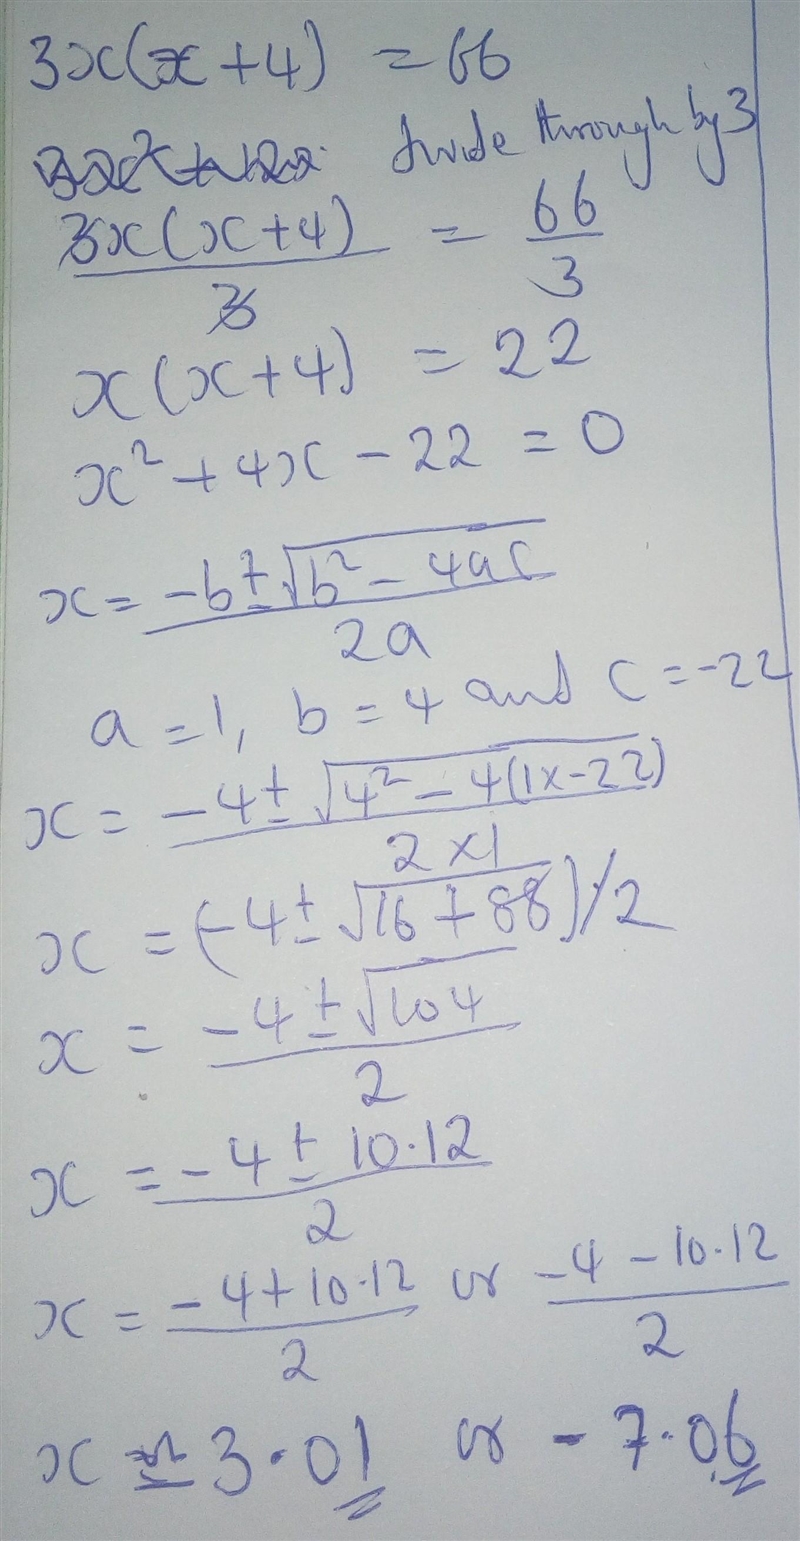 3x(x+4) = 66
divide through by 3
3x(x+4)/3 = 66/3
x(x+4) = 22
x² + 4x - 22 = 0
x = -b ± √b² - 4ac / 2a
a = 1, b = 4 and c = -22
x = -4 ± √4² - 4(1x-22) / 2×1
x = (-4 ± √16 + 88)/2
x = -4 ± √104 / 2
x = -4 ± 10.12 / 2
x = -4 + 10.12 / 2 or -4 - 10.12 / 2
x = 3.01 or -7.06